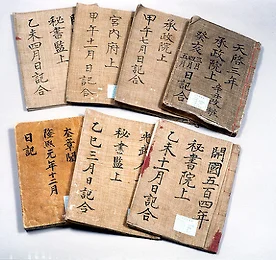 天啓三年
承政院上
癸亥
承政院上
甲午七月日記合
宮內府上
甲午十二月日記合
秘書監上
乙未四月日記合
開國五百四年
秘書院上
乙未十月日記合
秘書監上
乙巳三月日記合
奎章閣
隆熙元年十二月
日記